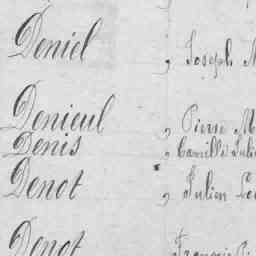 Deniel, Joseph M
Denieul, Pierre M
Denis, Camille Juli
Denot, Julien
Denot François